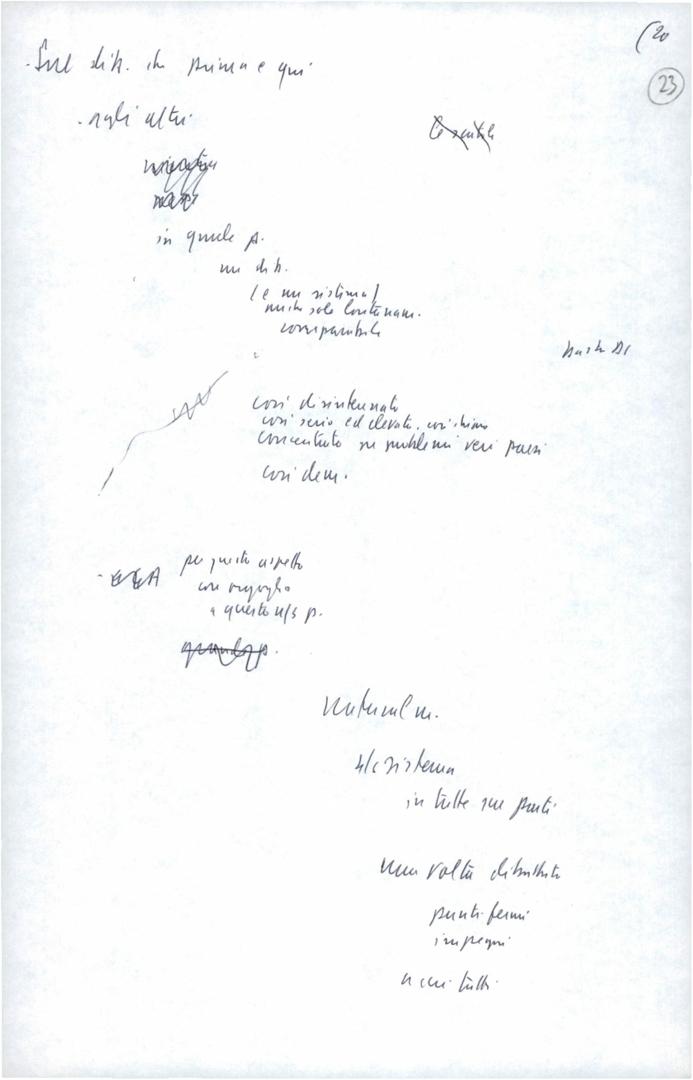 (20
23
- Sul dib. che prima e qui
- negli altri
in quale p.
un dib.
(e un sistema)
anche solo lontanam.
comparabile
così disinteressato
così serio ed elevato, così
concentrato su problemi veri paesi
così dem.
per questo aspetto
con orgoglio
a questo ns p.
naturalm.
sistema
in tutte sue parti
una volta dibattuto
punti fermi
impegni
a cui tutti